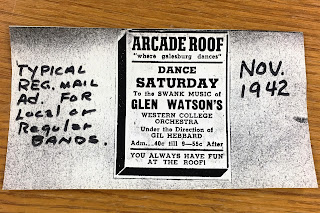 TYPICAL
REG. MAIL
Ad. FOR
Local or
Regular
BANDS.
ARCADE ROOF
"where galesburg dances"
DANCE
SATURDAY
To the SWANK MUSIC of
GLEN WATSON'S
WESTERN COLLEGE
ORCHESTRA
Under the Direction of
GIL HEBBARD
Adm...40c till 9—55c After
YOU ALWAYS HAVE FUN
AT THE ROOF!
NOV.
1942